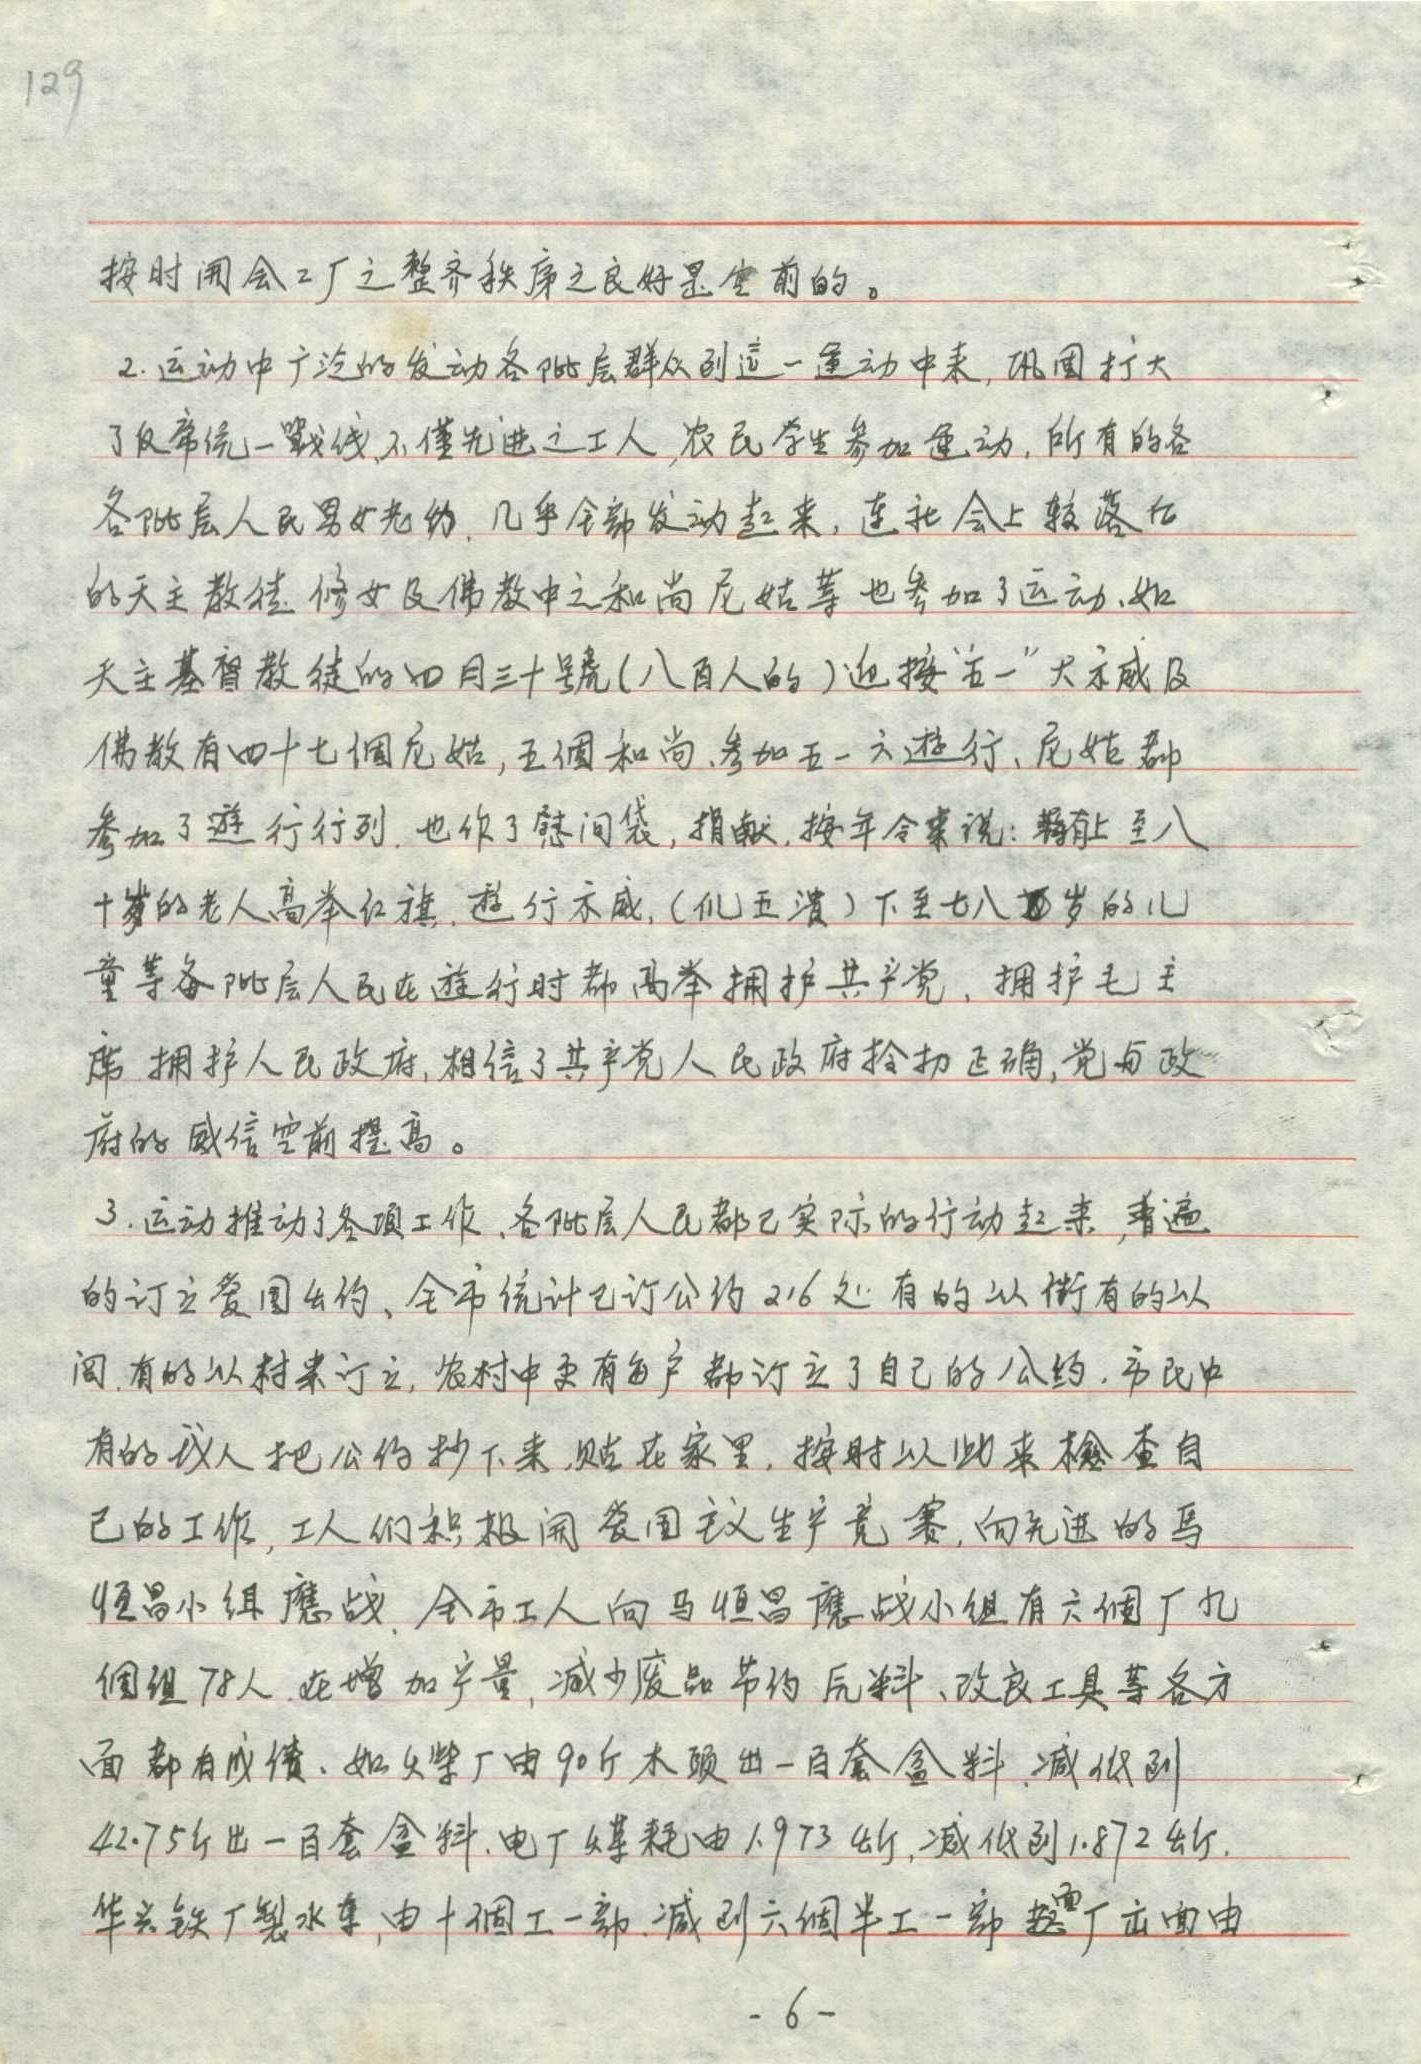 129
按时闹会工厂之整齐秩序之良好是空前的。
2.运动中广泛的发动各阶层群众到這一運动中来,巩固扩大
了反帝统一戰线、不僅先进之工人,农民学生参加運动,所有的各
各阶层人民男女老幼,几乎全部发动起来,連社会上較落后
的天主教徒修女及佛教中之和尚尼姑等也参加了运动、如
天主基督教徒的四月三十號(八百人的)迎接"五一"大示威及
佛教有四十七個尼姑,五個和尚、参加五一六遊行、尼姑都
参加了遊行行列.也作了慰问袋,捐献,按年令来说:上至八
十岁的老人高举红旗,遊行示威,()下至七八岁的儿
童等各阶层人民在遊行时都高举拥护共产党、拥护毛主
席拥护人民政府,相信了共产党人民政府正确,党与政
府的威信空前提高。
3.运动推动了各項工作、各阶层人民都已实际的行动起来,普遍
的订立爱国公约、全市统计已订公约216处有的以街有的以
闾,有的以村来订立,农村中更有每户都订立了自己的公约.市民中
有的人把公约抄下来,贴在家里,按时以此来檢查自
己的工作,工人们积极闹爱国主义生产竞赛,向先进的馬
恒昌小组應战,全市工人向马恒昌應战小组有六個厂九
個组78人,在增加产量,减少废品节约原料、改良工具等各方
面都有成债、如火柴厂由90斤木頭出一百套盒料,减低到
42.75斤出一百套盒料.电厂煤耗由1.973斤,减低到1.872斤.
华兴铁厂製水車,由十個工一部.减到六個半工一部麵厂出面由
-6-